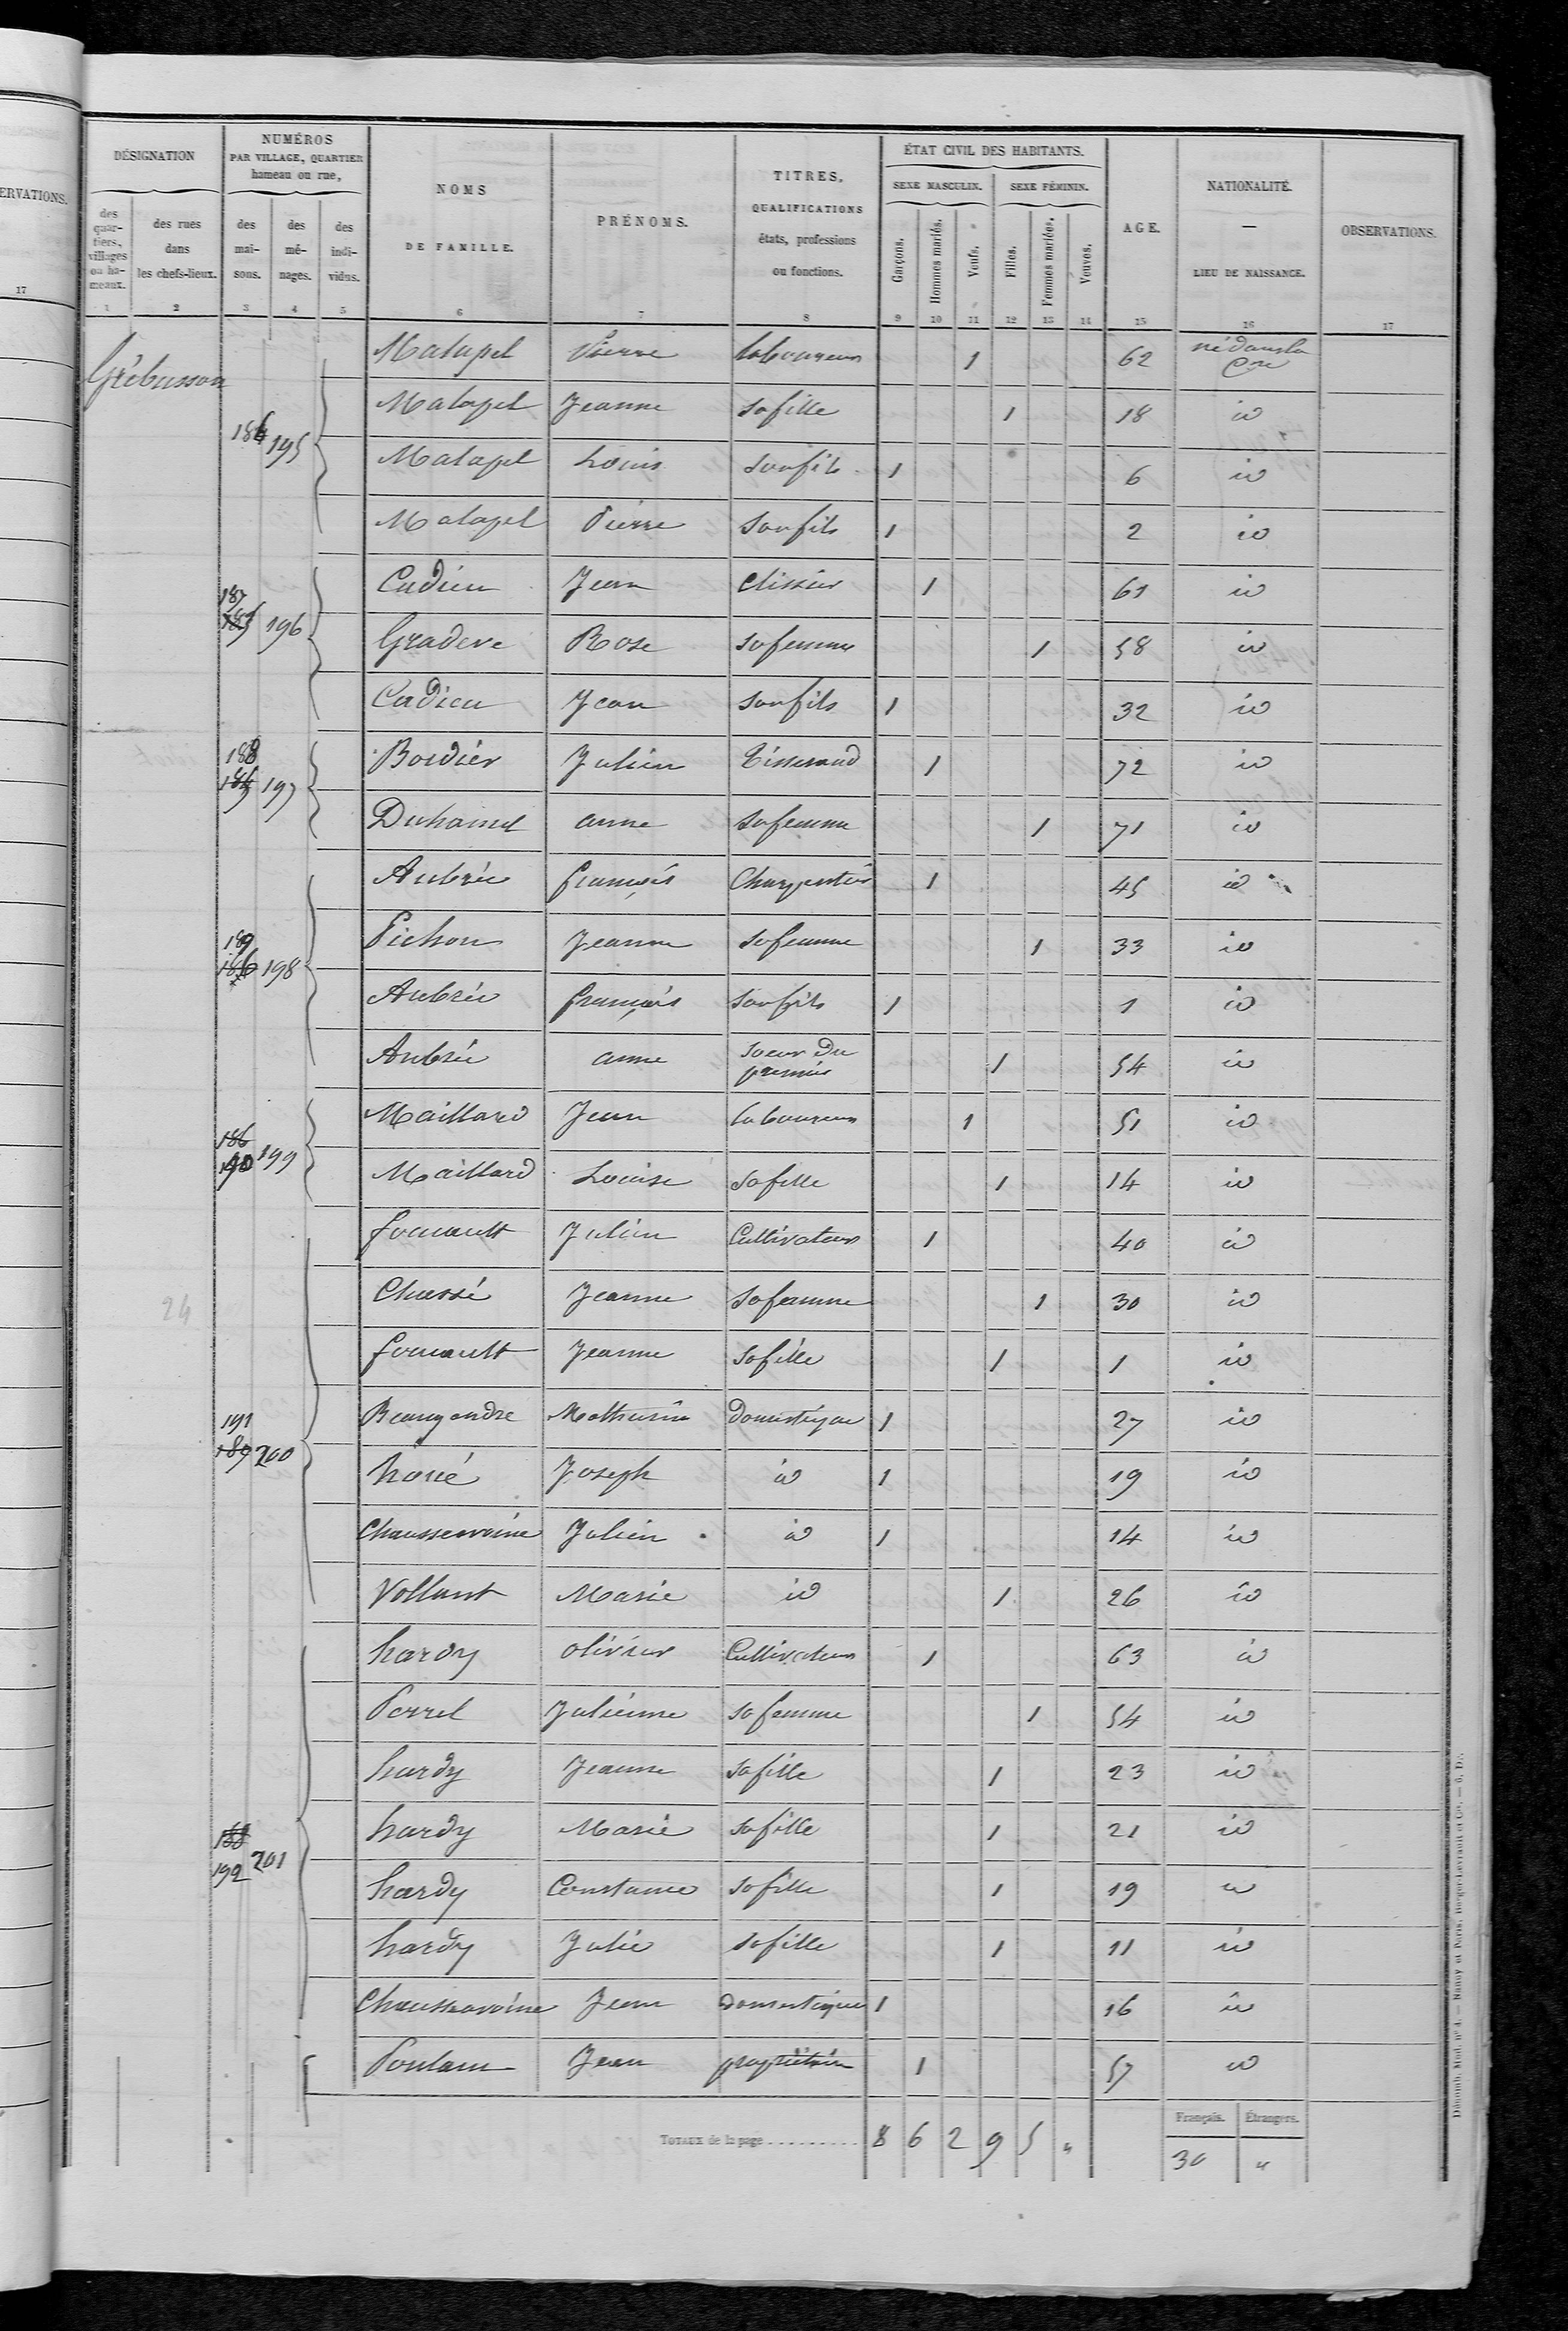 ERVATIONS.
17
DÉSIGNATION
NUMÉROS
PAR VILLAGE, QUARTIER
hameau ou rue,
NOMS
DE FAMILLE.
PRÉNOMS.
TITRES,
QUALIFICATIONS
états, professions
ou fonctions.
ÉTAT CIVIL DES HABITANTS.
SEXE MASCULIN. SEXE FÉMININ.
AGE.
NATIONALITÉ.
—
LIEU DE NAISSANCE.
OBSERVATIONS.
des quar-tiers, villages ou ha-meaux.
des rues dans les chefs-lieux.
des mai-sons.
des mé-nages.
des indi-vidus.
Garçons. Hommes mariés. Veufs. Filles. Femmes mariées. Veuves.
1 2 3 4 5 6 7 8 9 10 11 12 13 14 15 16 17
Grébusson
Malapel Pierre laboureur 1 62 né dans la Cne
186 195 Malapel Jeanne sa fille 1 18 id
Malapel Louis son fils 1 6 id
Malapel Pierre son fils 1 2 id
Cadieu Jean Clissier 1 61 id
187 196 Gradeve Rose sa femme 1 58 id
Cadieu Jean son fils 1 32 id
188 197 Bordier Julien Tisserand 1 72 id
Duhamel anne sa femme 1 71 id
Aubrée françois Charpentier 1 45 id
189 198 Pichon Jeanne sa femme 1 33 id
Aubrée françois son fils 1 1 id
Aubrée anne soeur du premier 1 54 id
Maillard Jean laboureur 1 51 id
186 190 199 Maillard Louise sa fille 1 14 id
fouault Julien Cultivateur 1 40 id
Chassé Jeanne sa femme 1 30 id
24
fouault Jeanne sa fille 1 1 id
191 200 Beaugendre Mathurin domestique 1 27 id
Joseph id 1 19 id
Chaussenvoine Julien id 1 14 id
Vollant Marie id 1 26 id
hardy olivier Cultivateur 1 63 id
Perrel Julienne sa femme 1 54 id
hardy Jeanne sa fille 1 23 id
188 192 201 hardy Marie sa fille 1 21 id
hardy Constance sa fille 1 19 id
hardy Julie sa fille 1 11 id
Chaussavoine Jean domestique 1 16 id
Poulain Jean propriétaire 1 57 id
Français. Étrangers.
TOTAUX de la page.......... 8 6 2 9 5 " 30 "